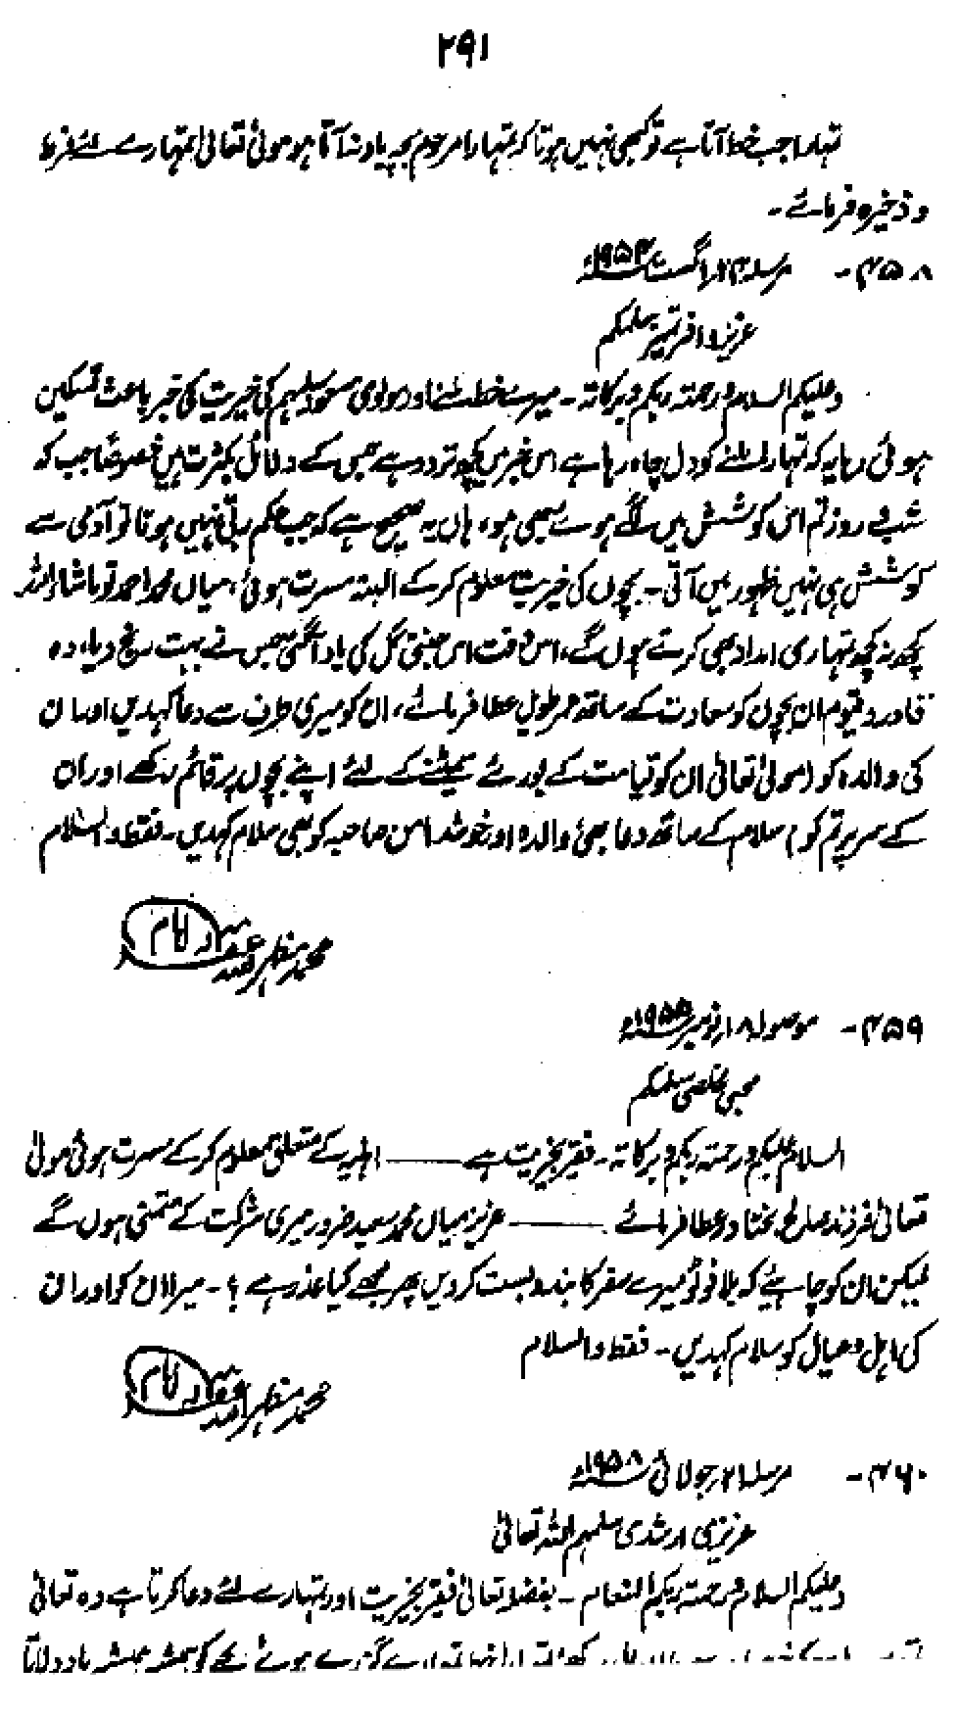 ۲۹۱
تمہارا جب خط آتا ہے تو کبھی نہیں ہوتا کہ تمہارا مرحوم بچہ یاد نہ آتا ہو مولیٰ تعالیٰ تمہارے لئے فرط
و ذخیرہ فرمائے۔
۴۵۸۔ مرسلہ اگست ۱۹۵۴ء
عزیز وافر تمیز سلمکم
وعلیکم السلام ورحمتہ ربکم وبرکاتہ۔ میرے خط ملنے اور مولوی مسعود سلہم کی خیریت کی خبر باعث تسکین
ہوئی رہا یہ کہ تمہارا ملنے کو دل چاہ رہا ہے اس خبر میں کچھ تردد ہے جس کے دلائل بکثرت ہیں خصوصاً جب کہ
شب و روز تم اس کوشش میں لگے ہوئے بھی ہو، ہاں یہ صحیح ہے کہ جب حکم ربی نہیں ہوتا تو آدمی سے
کوشش ہی نہیں ظہور میں آتی۔ بچوں کی خیریت معلوم کر کے البتہ مسرت ہوئی، میاں محمد احمد تو ماشاء اللہ
کچھ نہ کچھ تمہاری امداد بھی کرتے ہوں گے، اس وقت اس جنتی گل کی یاد آگئی جس نے بہت رنج دیا، وہ
قادر و قیوم ان بچوں کو سعادت کے ساتھ عمر طویل عطا فرمائے، ان کو میری طرف سے دعا کہدیں اور ان
کی والدہ کو (مولیٰ تعالیٰ ان کو قیامت کے بورئے سمیٹنے کے لئے اپنے بچوں پر قائم رکھے اور ان
کے سر پر تم کو) سلام کے ساتھ دعا بھی والدہ اور خوشدامن صاحبہ کو بھی سلام کہدیں۔ فقط والسلام
محمد مظہر اللہ امام
۴۵۹۔ موصولہ ۱۸ نومبر ۱۹۵۵ء
محبی مخلصی سلمکم
السلام علیکم ورحمتہ ربکم وبرکاتہ۔ فقیر بخیریت ہے ــــ اہلیہ کے متعلق معلوم کر کے مسرت ہوئی مولیٰ
تعالیٰ فرزند صالح بختاور عطا فرمائے ــــ عزیز میاں محمد سعید ضرور میری شرکت کے متمنی ہوں گے
لیکن ان کو چاہئیے کہ بلا فوٹو میرے سفر کا بندوبست کردیں پھر مجھے کیا عذر ہے؟۔ میرا ان کو اور ان
کی اہل وعیال کو سلام کہدیں۔ فقط والسلام
محمد مظہر اللہ امام
۴۶۰۔ مرسلہ ۲۱ جولائی ۱۹۵۸ء
عزیزی ارشدی سلمہم اللہ تعالیٰ
وعلیکم السلام ورحمتہ ربکم المنعام۔ بفضلہ تعالیٰ فقیر بخیریت اور تمہارے لئے دعا کرتا ہے وہ تعالیٰ
گزرے ہوئے بچے کو ہمیشہ ہمیشہ یاد دلاتا